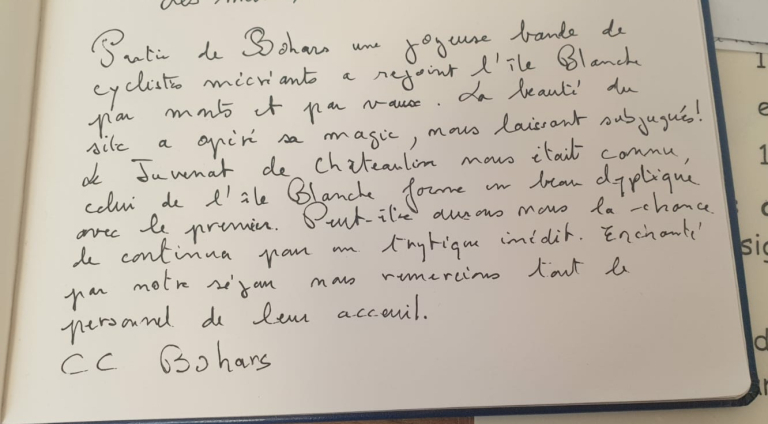 Partie de Bohars une joyeuse bande de
cyclistes mécréants a rejoint l'île Blanche
par monts et par vaux. La beauté du
site a opéré sa magie, nous laissant subjugués!
Le Juvenat de Châteaulin nous était connu,
celui de l'île Blanche forme un beau dyptique
avec le premier. Peut-être aurons nous la chance
de continuer par un tryptique inédit. Enchanté
par notre séjour nous remercions tout le
personnel de leur acceuil.
CC Bohars
1
e
1
sig
d